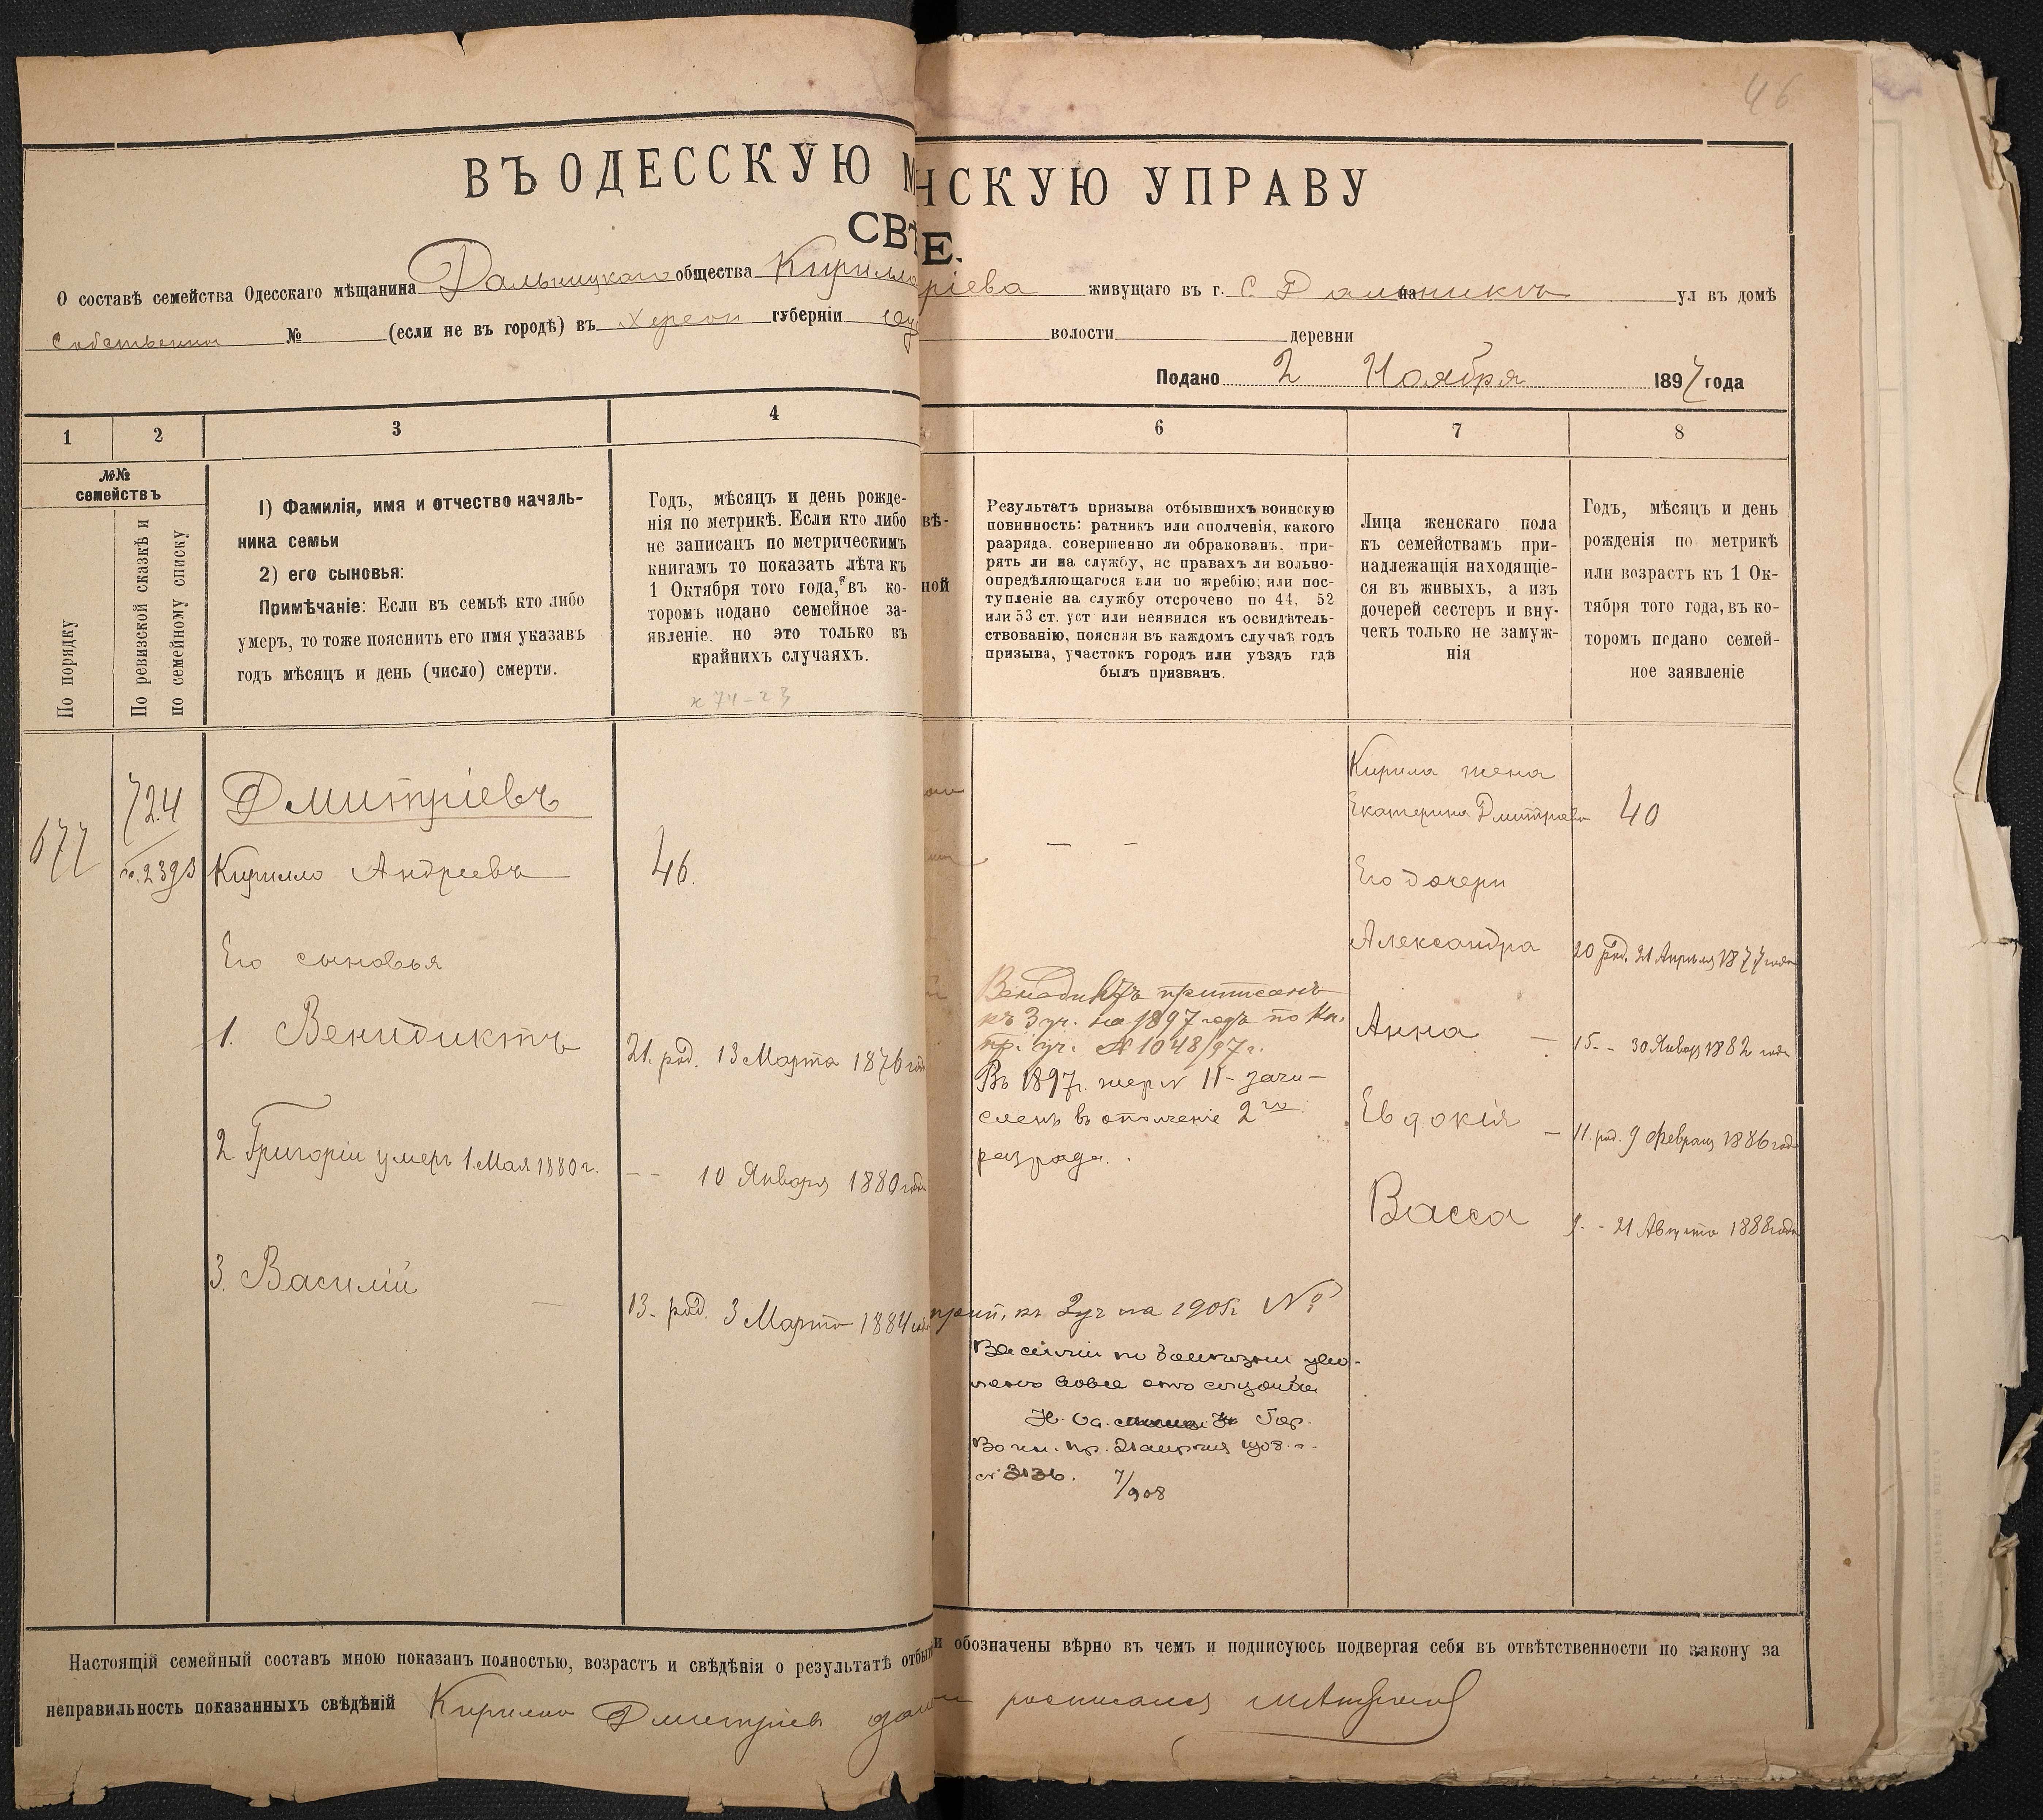 46
ВЪ ОДЕССКУЮ М НСКУЮ УПРАВУ
СВѢ Е.
О составѣ семейства Одесскаго мѣщанина Дальницкаго общества Кирилла ріева живущаго въ г. С. Дальникъ на ул въ домѣ
Собственни № (если не въ городѣ) въ Херсон губерніи волости деревни
Подано 2 Ноября 1897 года
1 2 3 4 6 7 8
№№ семействъ
По порядку
По ревизской сказкѣ и по семейному списку
1) Фамилія, имя и отчество началь-
ника семьи
2) его сыновья:
Примѣчаніе: Если въ семьѣ кто либо
умеръ, то тоже пояснить его имя указавъ
годъ мѣсяцъ и день (число) смерти.
Годъ, мѣсяцъ и день рожде-
нія по метрикѣ. Если кто либо
не записанъ по метрическимъ
книгамъ то показать лѣта къ
1 Октября того года, въ ко-
торомъ подано семейное за-
явленіе. но это только въ
крайнихъ случаяхъ.
74-23
вѣ-
ной
Результатъ призыва отбывшихъ воинскую
повинность: ратникъ или ополченія, какого
разряда. совершенно ли обракованъ. при-
рять ли на службу, нс правахъ ли вольно-
опредѣляющагося или по жребію; или пос-
тупленіе на службу отсрочено по 44, 52
или 53 ст. уст или неявился къ освидѣтель-
ствованію, поясняя въ каждомъ случаѣ годъ
призыва, участокъ городъ или уѣздъ гдѣ
былъ призванъ.
Лица женскаго пола
къ семействамъ при-
надлежащія находящіе-
ся въ живыхъ, а изъ
дочерей сестеръ и вну-
чекъ только не замуж-
нія
Годъ, мѣсяцъ и день
рожденія по метрикѣ
или возрастъ къ 1 Ок-
тября того года, въ ко-
торомъ подано семей-
ное заявленіе
677
724
2393
Дмитріевъ
Кирилло Андреевъ 46.
Его сыновья
1. Венидиктъ 21. род. 13 Марта 1876 год
2 Григорій умеръ 1. Мая 1880 г. -- 10 Января 1880 года
3. Василій 13- род. 3 Марта 1884
— -
Венедиктъ приписанъ
къ 3 уч. на 1897 годъ по
пр. уч. № 1048/97 г.
Въ 1897 г. жер № 11- зачи-
сленъ въ ополченіе 2го
разряда.
прип. къ 2 уч на 1905 г. №
Василій по болѣзни уво-
ленъ вовсе отъ службы
Гор.
Воин. пр. 1908 г.
№ 3136. 7/908
Кирила жена
Екатерина Дмитріева 40
Его дочери
Александра 20 род. 21 Апрѣля 1877 года
Анна - 15 - 30 Январ 1882 года
Евдокія - 11. род. 9 Февраля 1886 года
Васса 9. - 21 Августа 1888 года
Настоящій семейный составъ мною показанъ полностью, возрастъ и свѣдѣнія о результатѣ отбы и обозначены вѣрно въ чемъ и подписуюсь подвергая себя въ отвѣтственности по закону за
неправильность показанныхъ свѣдѣній Кирилло Дмитріев росписался